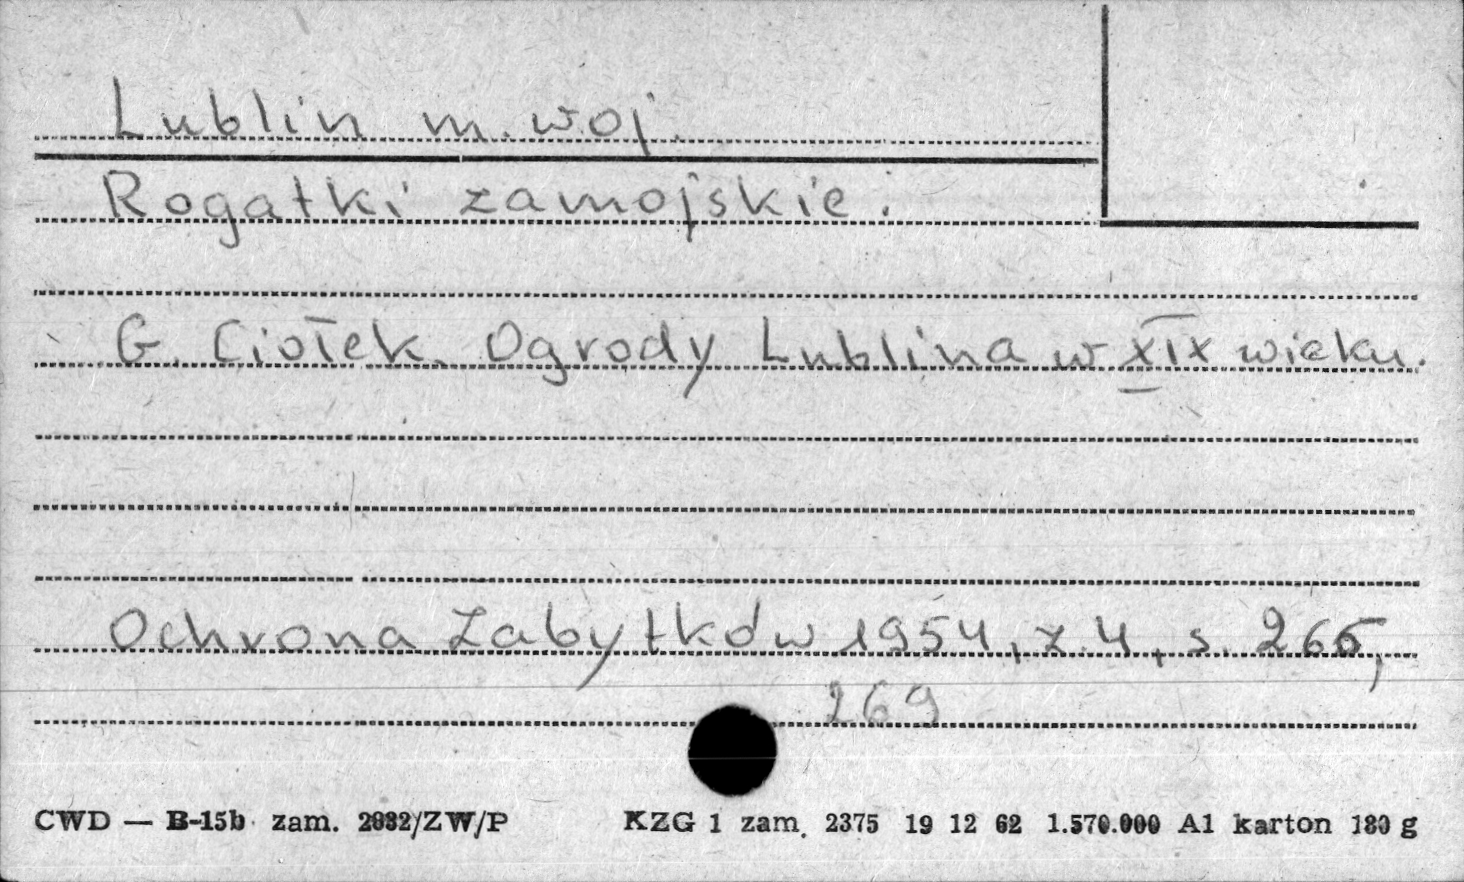 Lublin m. woj.
Rogatki zamojskie.
G. Ciołek. Ogrody Lublina w XIX wieku.
Ochrona Zabytków 1954, z. 4, s. 265,
269
CWD — B-15b zam. 2032/ZW/P KZG 1 zam. 2375 19 12 62 1.570.000 A1 karton 180 g